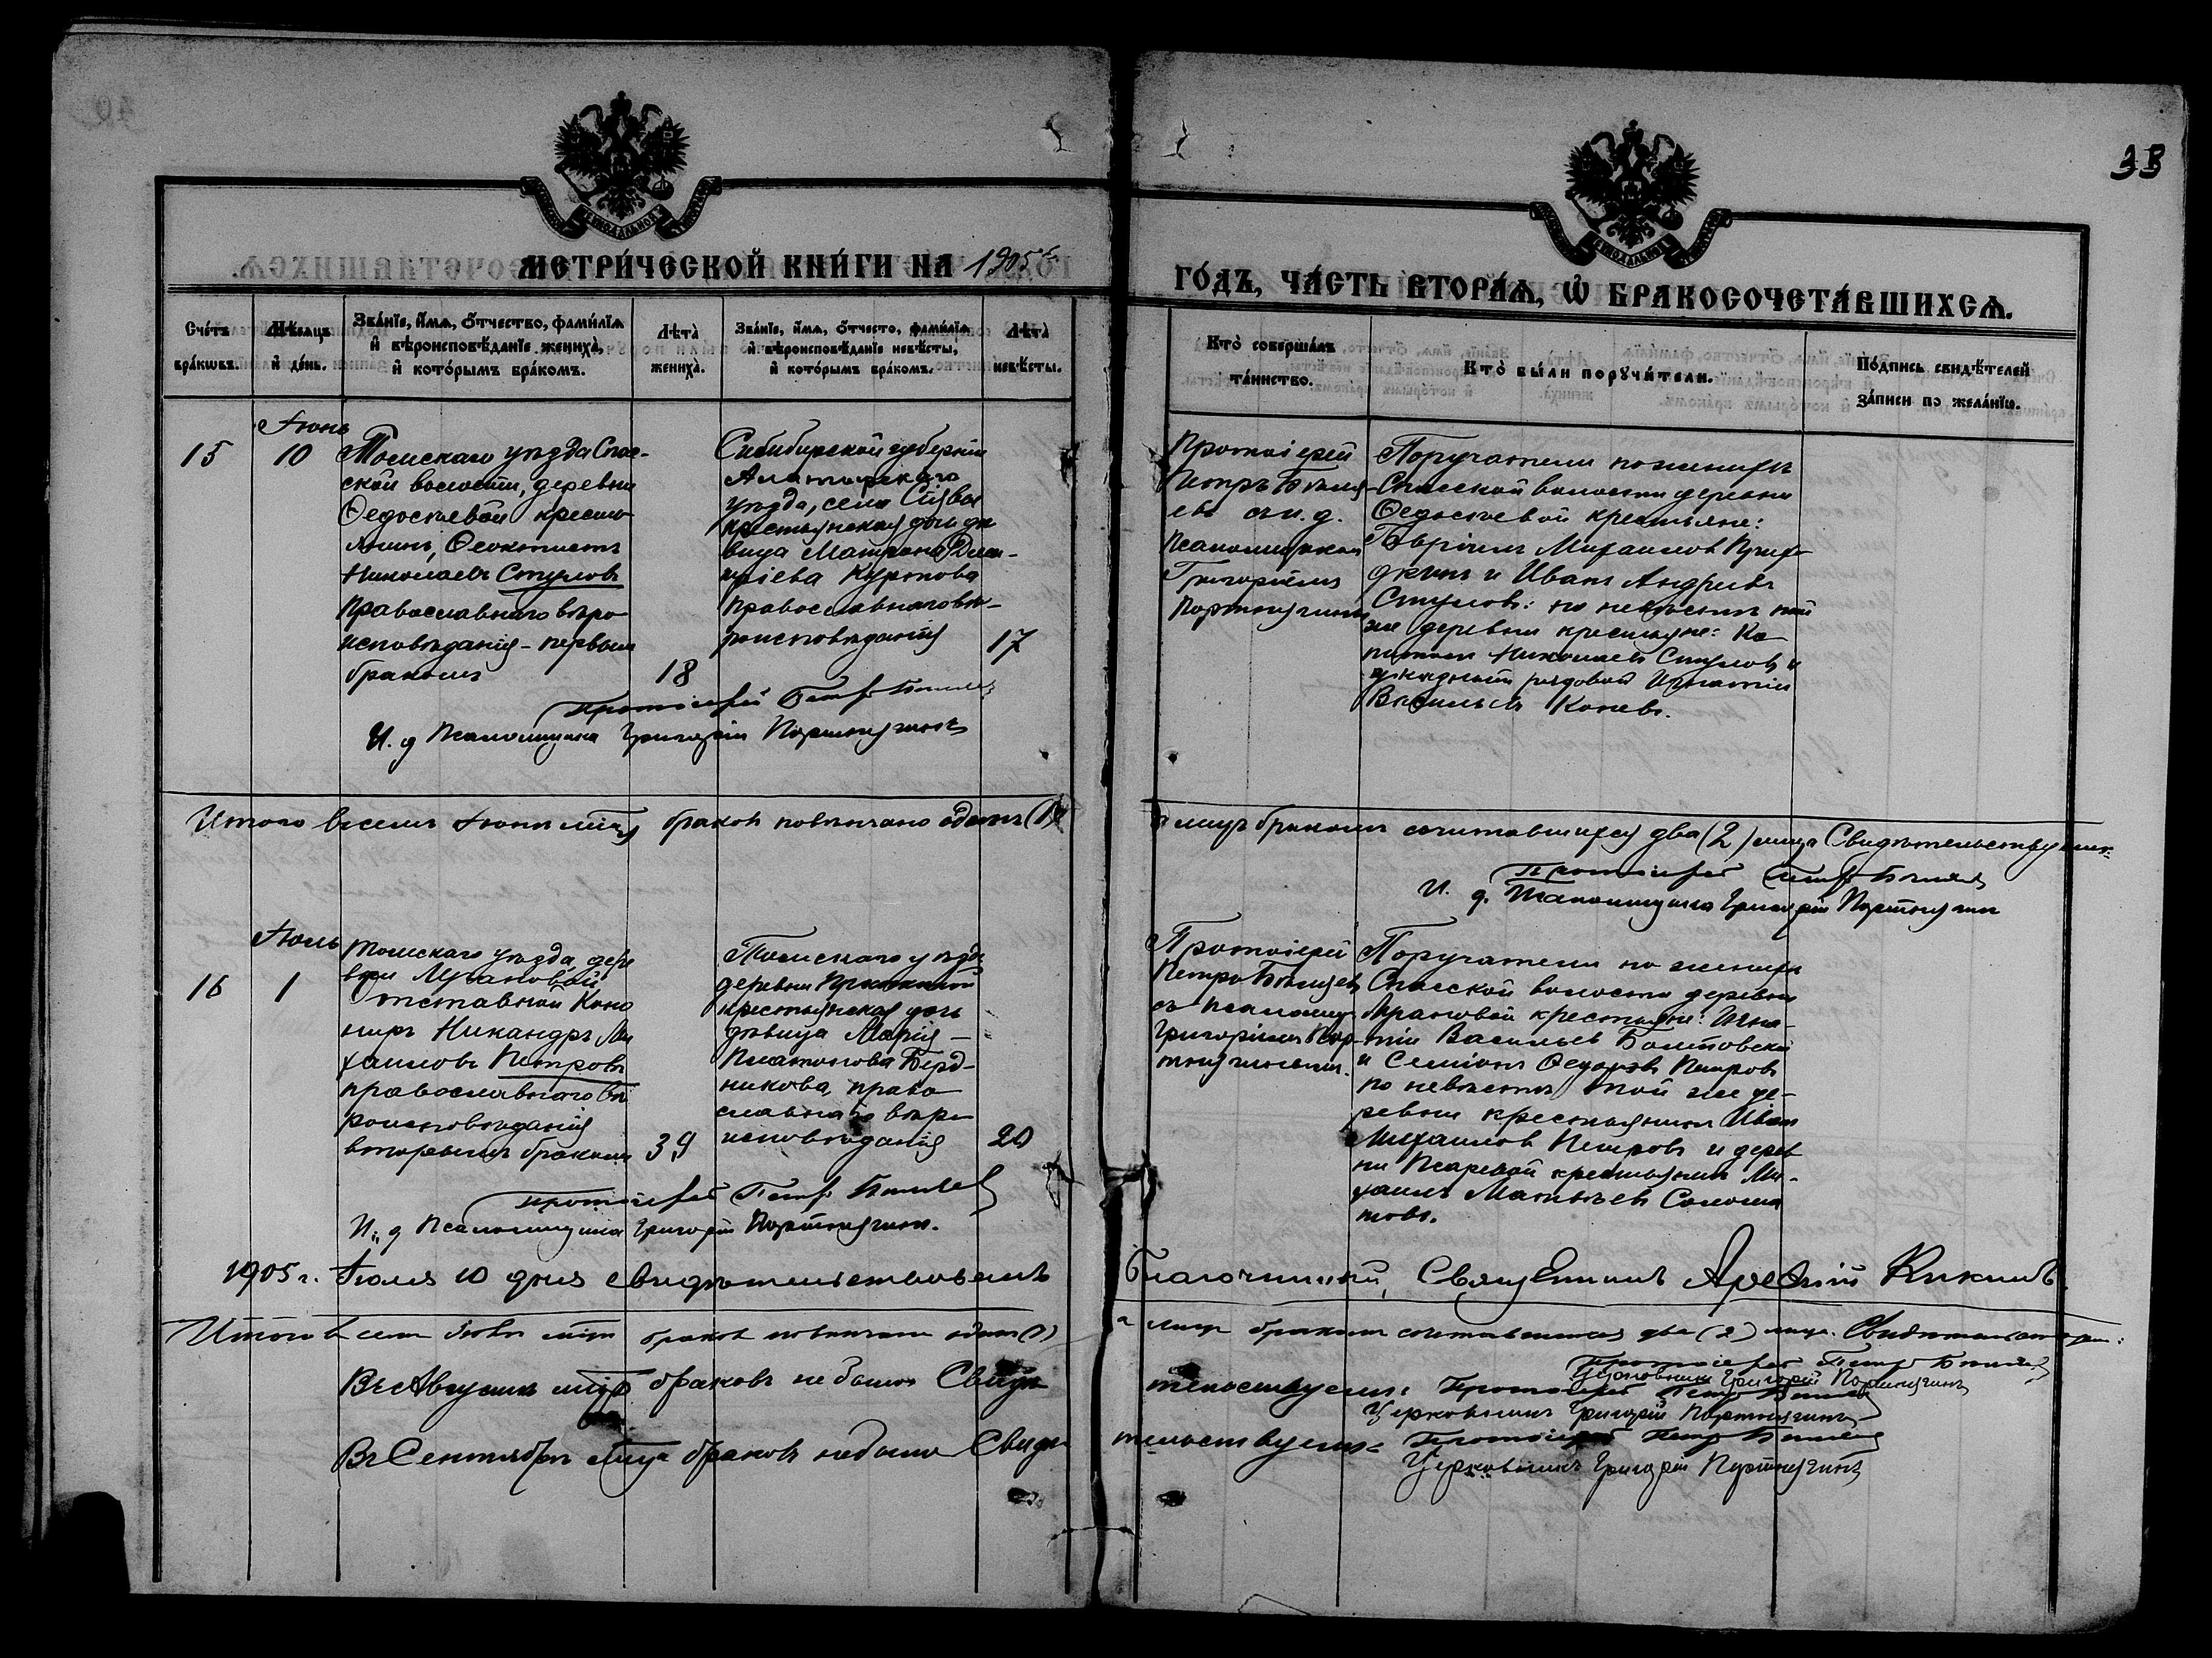 33
МЕТРИ́ЧЕСКОЙ КНИ́ГИ НА 1905й
ГО́ДЪ, ЧА́СТЬ ВТОРА́Ѧ, Ѽ БРАКОСОЧЕТА́ВШИХСѦ.
Сче́тъ
бра́кѡвъ.
Мѣ́сѧцъ
и҆ де́нь.
Зва́нїе, и҆́мѧ, ѻ҆́тчество, фами́лїѧ
и҆ вѣроисповѣ́данїе жениха̀,
и҆ кото́рымъ бра́комъ.
Лѣта̀
жениха̀.
Зва́нїе, и҆́мѧ, ѻ҆́тчесто, фами́лїѧ
и҆ вѣроисповѣ́данїе невѣ́сты,
и҆ кото́рымъ бра́комъ.
Лѣта̀
невѣ́сты.
Кто̀ соверша́лъ
та́инство.
Кто̀ бы́ли порꙋчи́тели.
По́дпись свидѣ́телей
за́писи по жела́нїю.
15
Іюнь
10
Томскаго уѣзда Спас-
ской волости, деревни
Ѳедосѣевой крестья-
нинъ, Ѳеоктистъ
Николаевъ Стуловъ
православнаго вѣро
исповѣданія - первымъ
бракомъ
18
Симбирской губерніи
Алатырскаго
уѣзда, села
крестьянская дочь дѣ
вица Матрона Дими-
тріева Куртова
православнаго вѣ-
роисповѣданія
17
Протоіерей Петръ Бѣляевъ
И. д Псаломщика Григорій Портнягинъ
Протоіерей
Петръ Бѣля-
евъ съ и. д.
Псаломщика
Григоріемъ
Портнягинымъ
Поручатели по женихѣ
Спасской волости деревни
Ѳедосѣевой крестьяне:
Гавріилъ Михаиловъ
и Иванъ Андреевъ
Стуловъ: по невѣстѣ той
же деревни крестьяне: Ка
питонъ Николаевъ Стуловъ и
рядовой Игнатій
Васильевъ Коневъ.
Итого всемъ Іюнѣ мѣцѣ браковъ повѣнчано одинъ (1)
а лицъ бракомъ сочитавшихся два (2) лица Свидѣтельствуемъ:
Протоіерей Петръ Бѣляевъ
И. д. Псаломщика Григорій Портнягинъ
16
Іюль
1
Томскаго уѣзда дере
вни Лучановой
Отставной Кано
ниръ Никандръ Ми
хаиловъ Петровъ
православнаго вѣ
роисповѣданія
вторымъ бракомъ
39
Томскаго уѣзда
деревни
крестьянская дочь
дѣвица Марія
Платонова Берд-
никова, право
славнаго вѣро
исповѣданія
20
Протоіерей Петръ Бѣляевъ
И. д Псаломщика Григорій Портнягинъ.
Протоіерей
Петръ Бѣляевъ
съ псаломщ.
Григоріемъ Пор-
тнягинымъ.
Поручатели по женихѣ
Спасской волости деревни
крестьяне: Игна-
тій Васильевъ Болтовскій
и Семіонъ Ѳедоровъ Петровъ
по невѣстѣ той же де-
ревни крестьянинъ Иванъ
Михаиловъ Петровъ и дерев
ни Писаревой крестьянинъ Ми-
хаилъ Матвѣевъ Солома
товъ.
1905 г. Іюля 10 дня свидѣтельствовалъ
Благочинный, Священникъ Арсеній Кикинъ
Итого въ семъ Іюлѣ мѣцѣ браковъ повѣнчано одинъ (1)
а лицъ бракомъ сочитавшихся два (2) лица. Свидѣтельствуемъ:
Протоіерей Петръ Бѣляевъ
Церковникъ Григорій Портнягинъ
Въ Августѣ мѣцѣ браковъ не было Свидѣ
тельствуемъ: Протоіерей Петръ Бѣляевъ
Церковникъ Григорій Портнягинъ
Въ Сентябрѣ мѣцѣ браковъ не было Свидѣ
тельствуемъ: Протоіерей Петръ Бѣляевъ
Церковникъ Григорій Портнягинъ